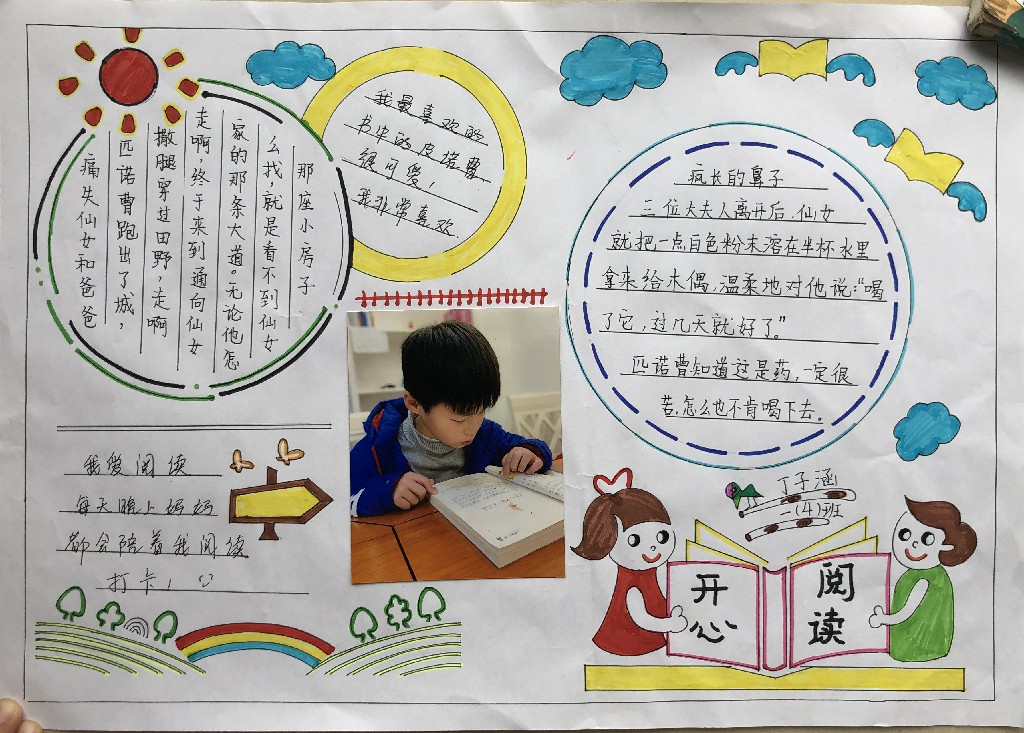 痛失仙女和爸爸
匹诺曹跑出了城，
撒腿穿过田野，走啊
走啊，终于来到通向仙女
家的那条大道。无论他怎
么找，就是看不到仙女
那座小房子
我最喜欢的
书中的皮诺曹
很可爱，
我非常喜欢.
疯长的鼻子
三位大夫人离开后，仙女
就把一点白色粉末溶在半杯水里
拿来给木偶，温柔地对他说：“喝
了它，过几天就好了.”
匹诺曹知道这是药，一定很
苦，怎么也不肯喝下去.
我爱阅读
每天晚上妈妈
都会陪着我阅读
打卡！
丁子涵
一(4)班
开心
阅读